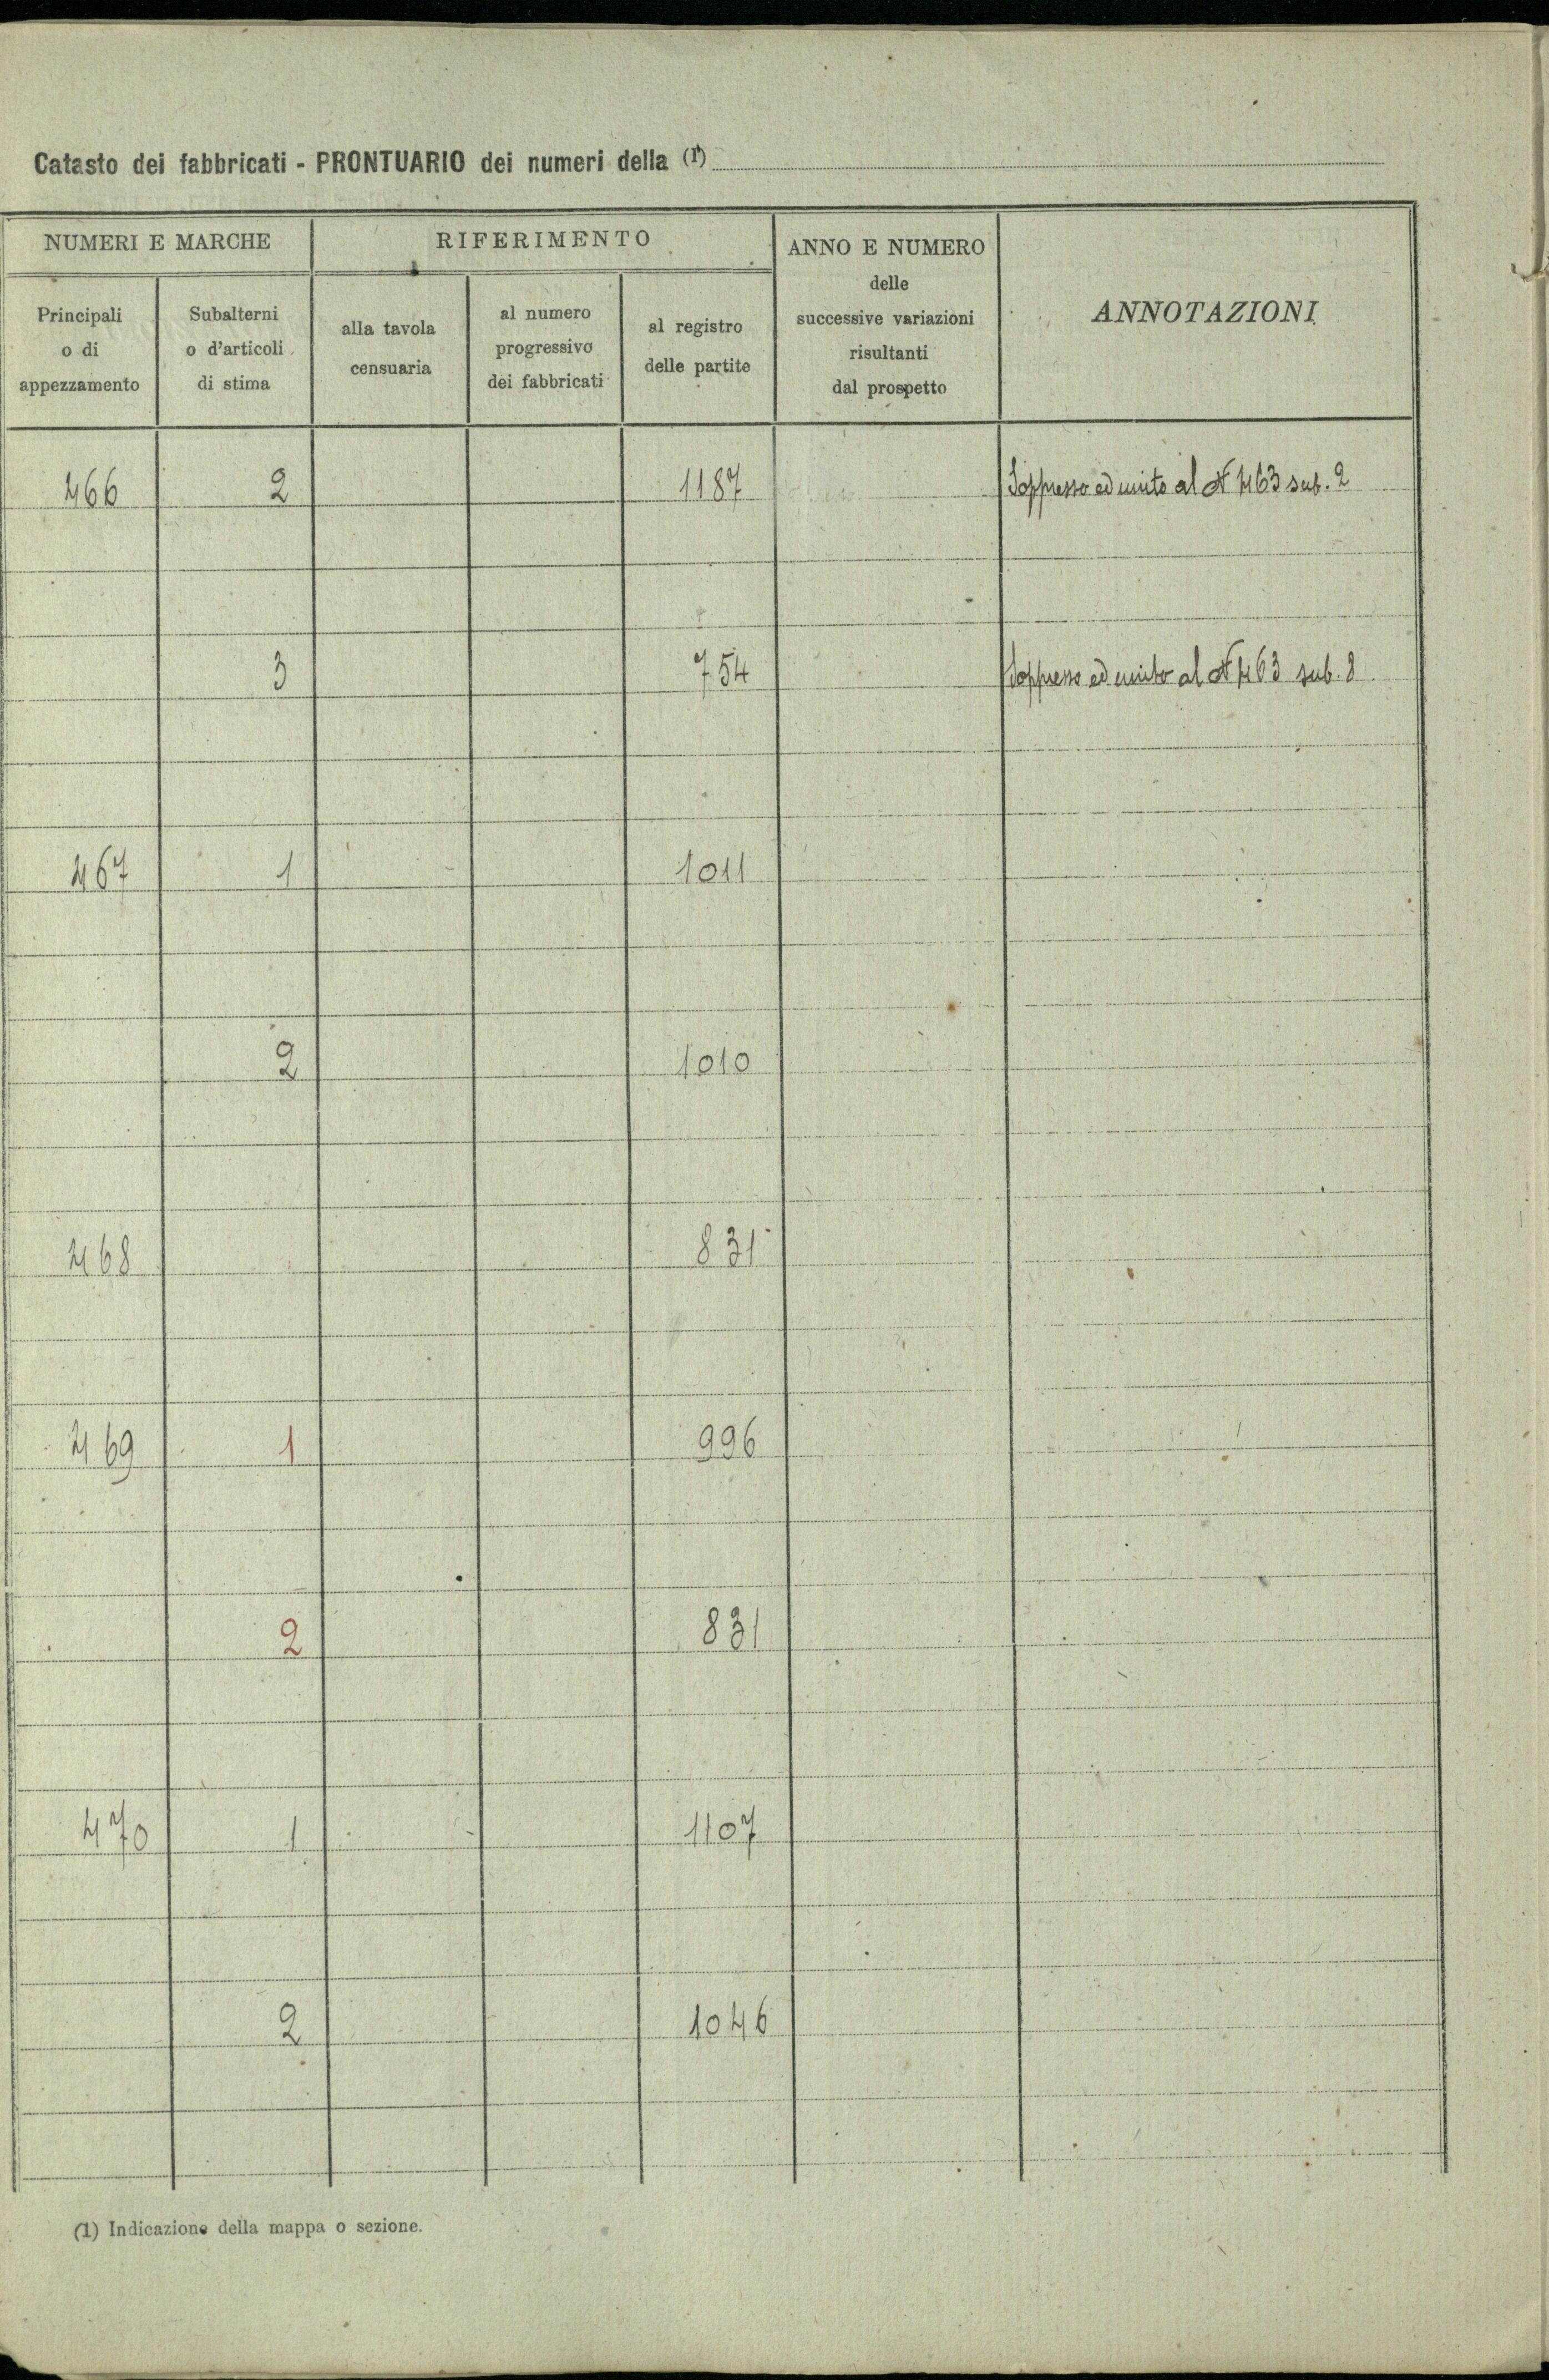 Catasto dei fabbricati - PRONTUARIO dei numeri della (1)
NUMERI E MARCHE
RIFERIMENTO
ANNO E NUMERO
delle
successive variazioni
risultanti
dal prospetto
ANNOTAZIONI
Principali
o di
appezzamento
Subalterni
o d'articoli
di stima
alla tavola
censuaria
al numero
progressivo
dei fabbricati
al registro
delle partite
466 2 1187 Soppresso ed unito al N 463 sub. 2
3 754 Soppresso ed unito al N 463 sub. 8
467 1 1011
2 1010
468 831
469 1 996
2 831
470 1 1107
2 1046
(1) Indicazione della mappa o sezione.